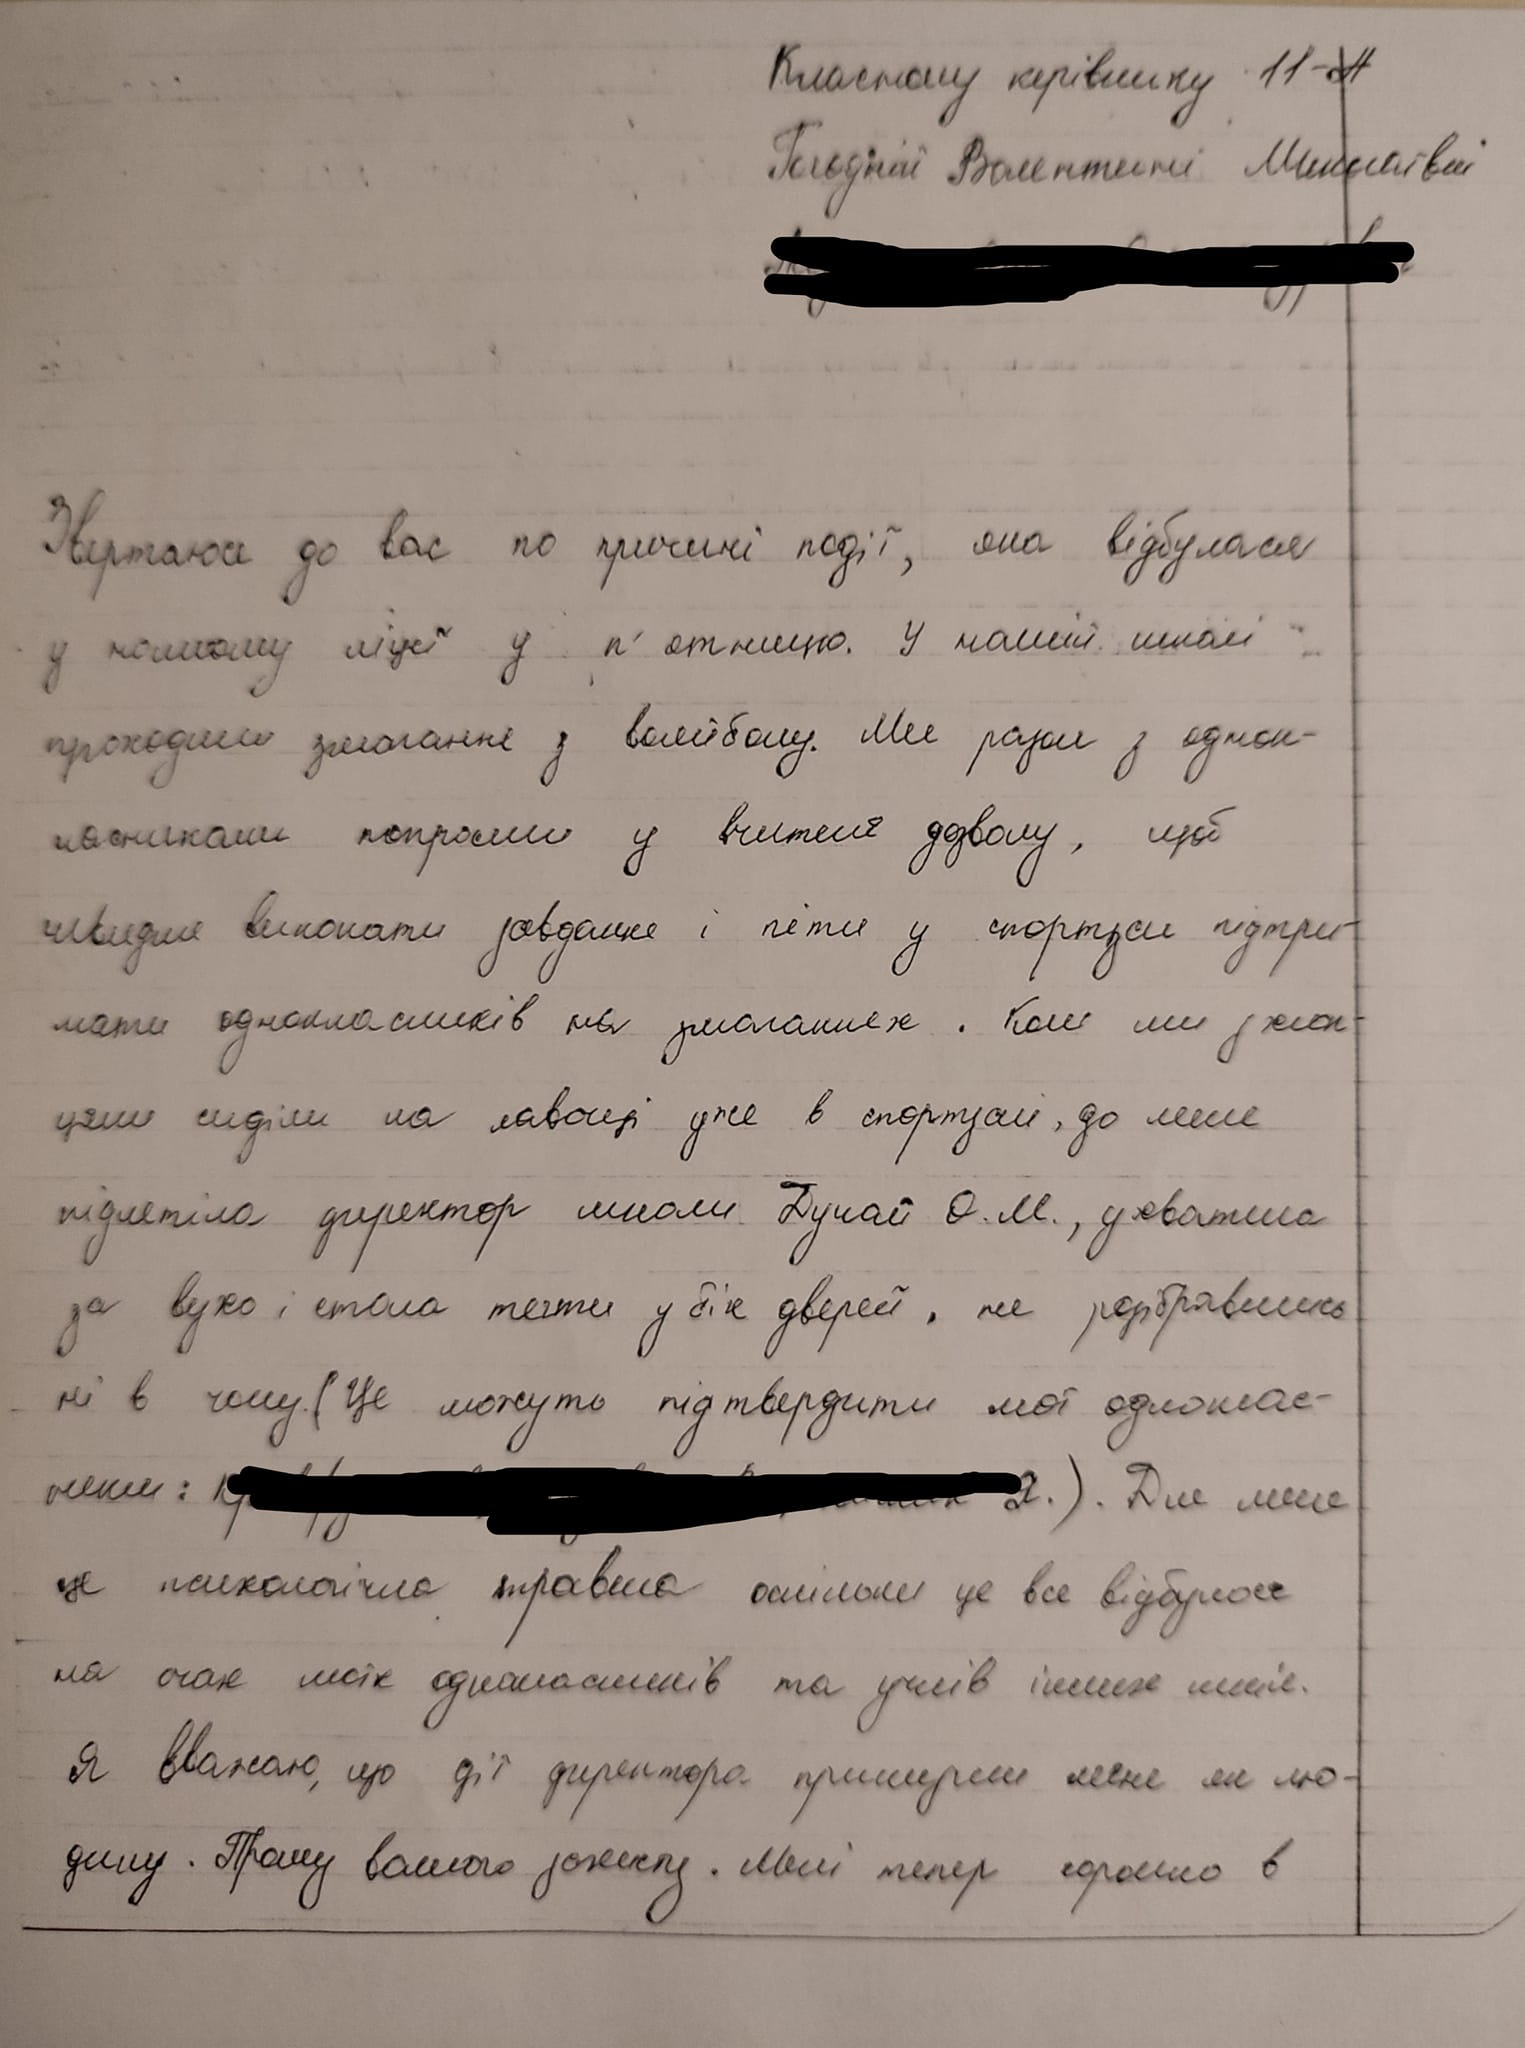 Класному керівнику 11-А
Валентині Миколаївні
Звертаюся до вас по причині події, яка відбулася
у нашому ліцеї у п'ятницю. У нашій школі
проходили змагання з волейболу. Ми разом з однок-
ласниками попросили у вчителя дозволу, щоб
швидше виконати завдання і піти у спортзал підтри-
мати однокласників на змаганнях. Коли ми з хлоп-
цями сиділи на лавочці уже в спортзалі, до мене
підлетіла директор школи Дунай О.М., ухватила
за вухо і стала тягти у бік дверей, не розібравшись
ні в чому. (Це можуть підтвердити мої одноклас-
ники: Я.). Для мене
це психологічна травма оскільки це все відбулося
на очах моїх однокласників та учнів інших шкіл.
Я вважаю, що дії директора принизили мене як лю-
дину. Прошу вашого захисту. Мені тепер соромно в